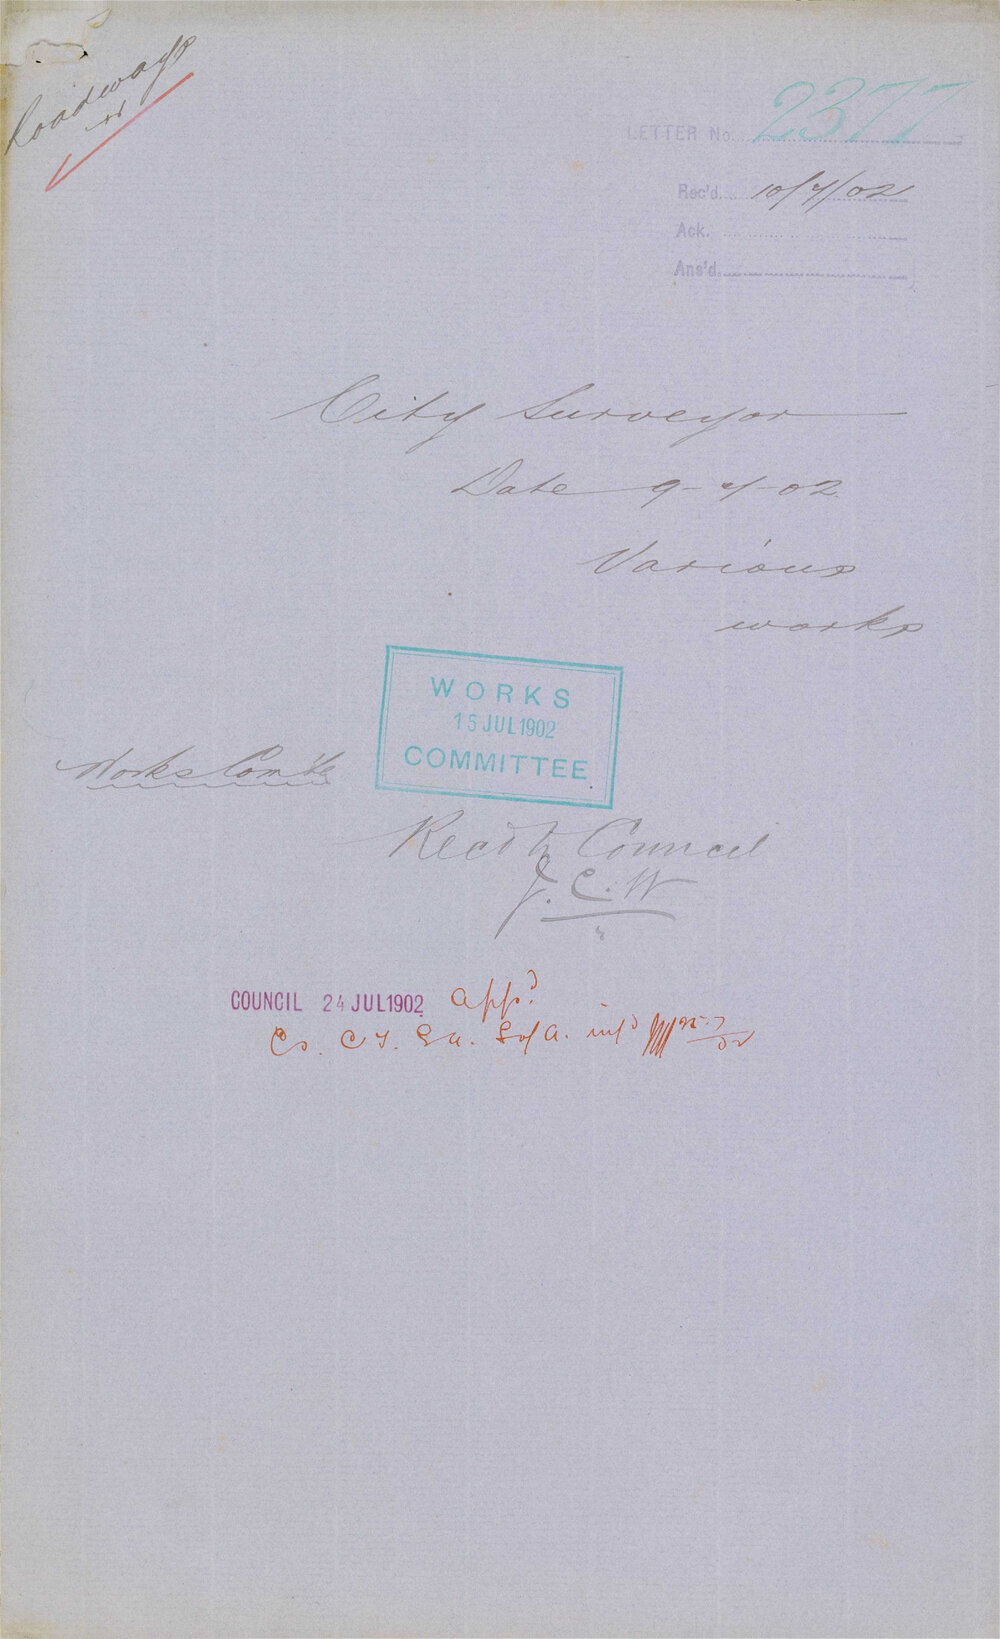 Roadways
LETTER No. 2377
Rec'd. 10/7/02
Ack.
Ans'd.
City Surveyor
Date 9-7-02
Various
works
WORKS
15 JUL 1902
COMMITTEE
Works Comte
Recd to Council
J.C.W
COUNCIL 24 JUL 1902 appd
Co. C T. Su. Sof A. infd 25.7/02